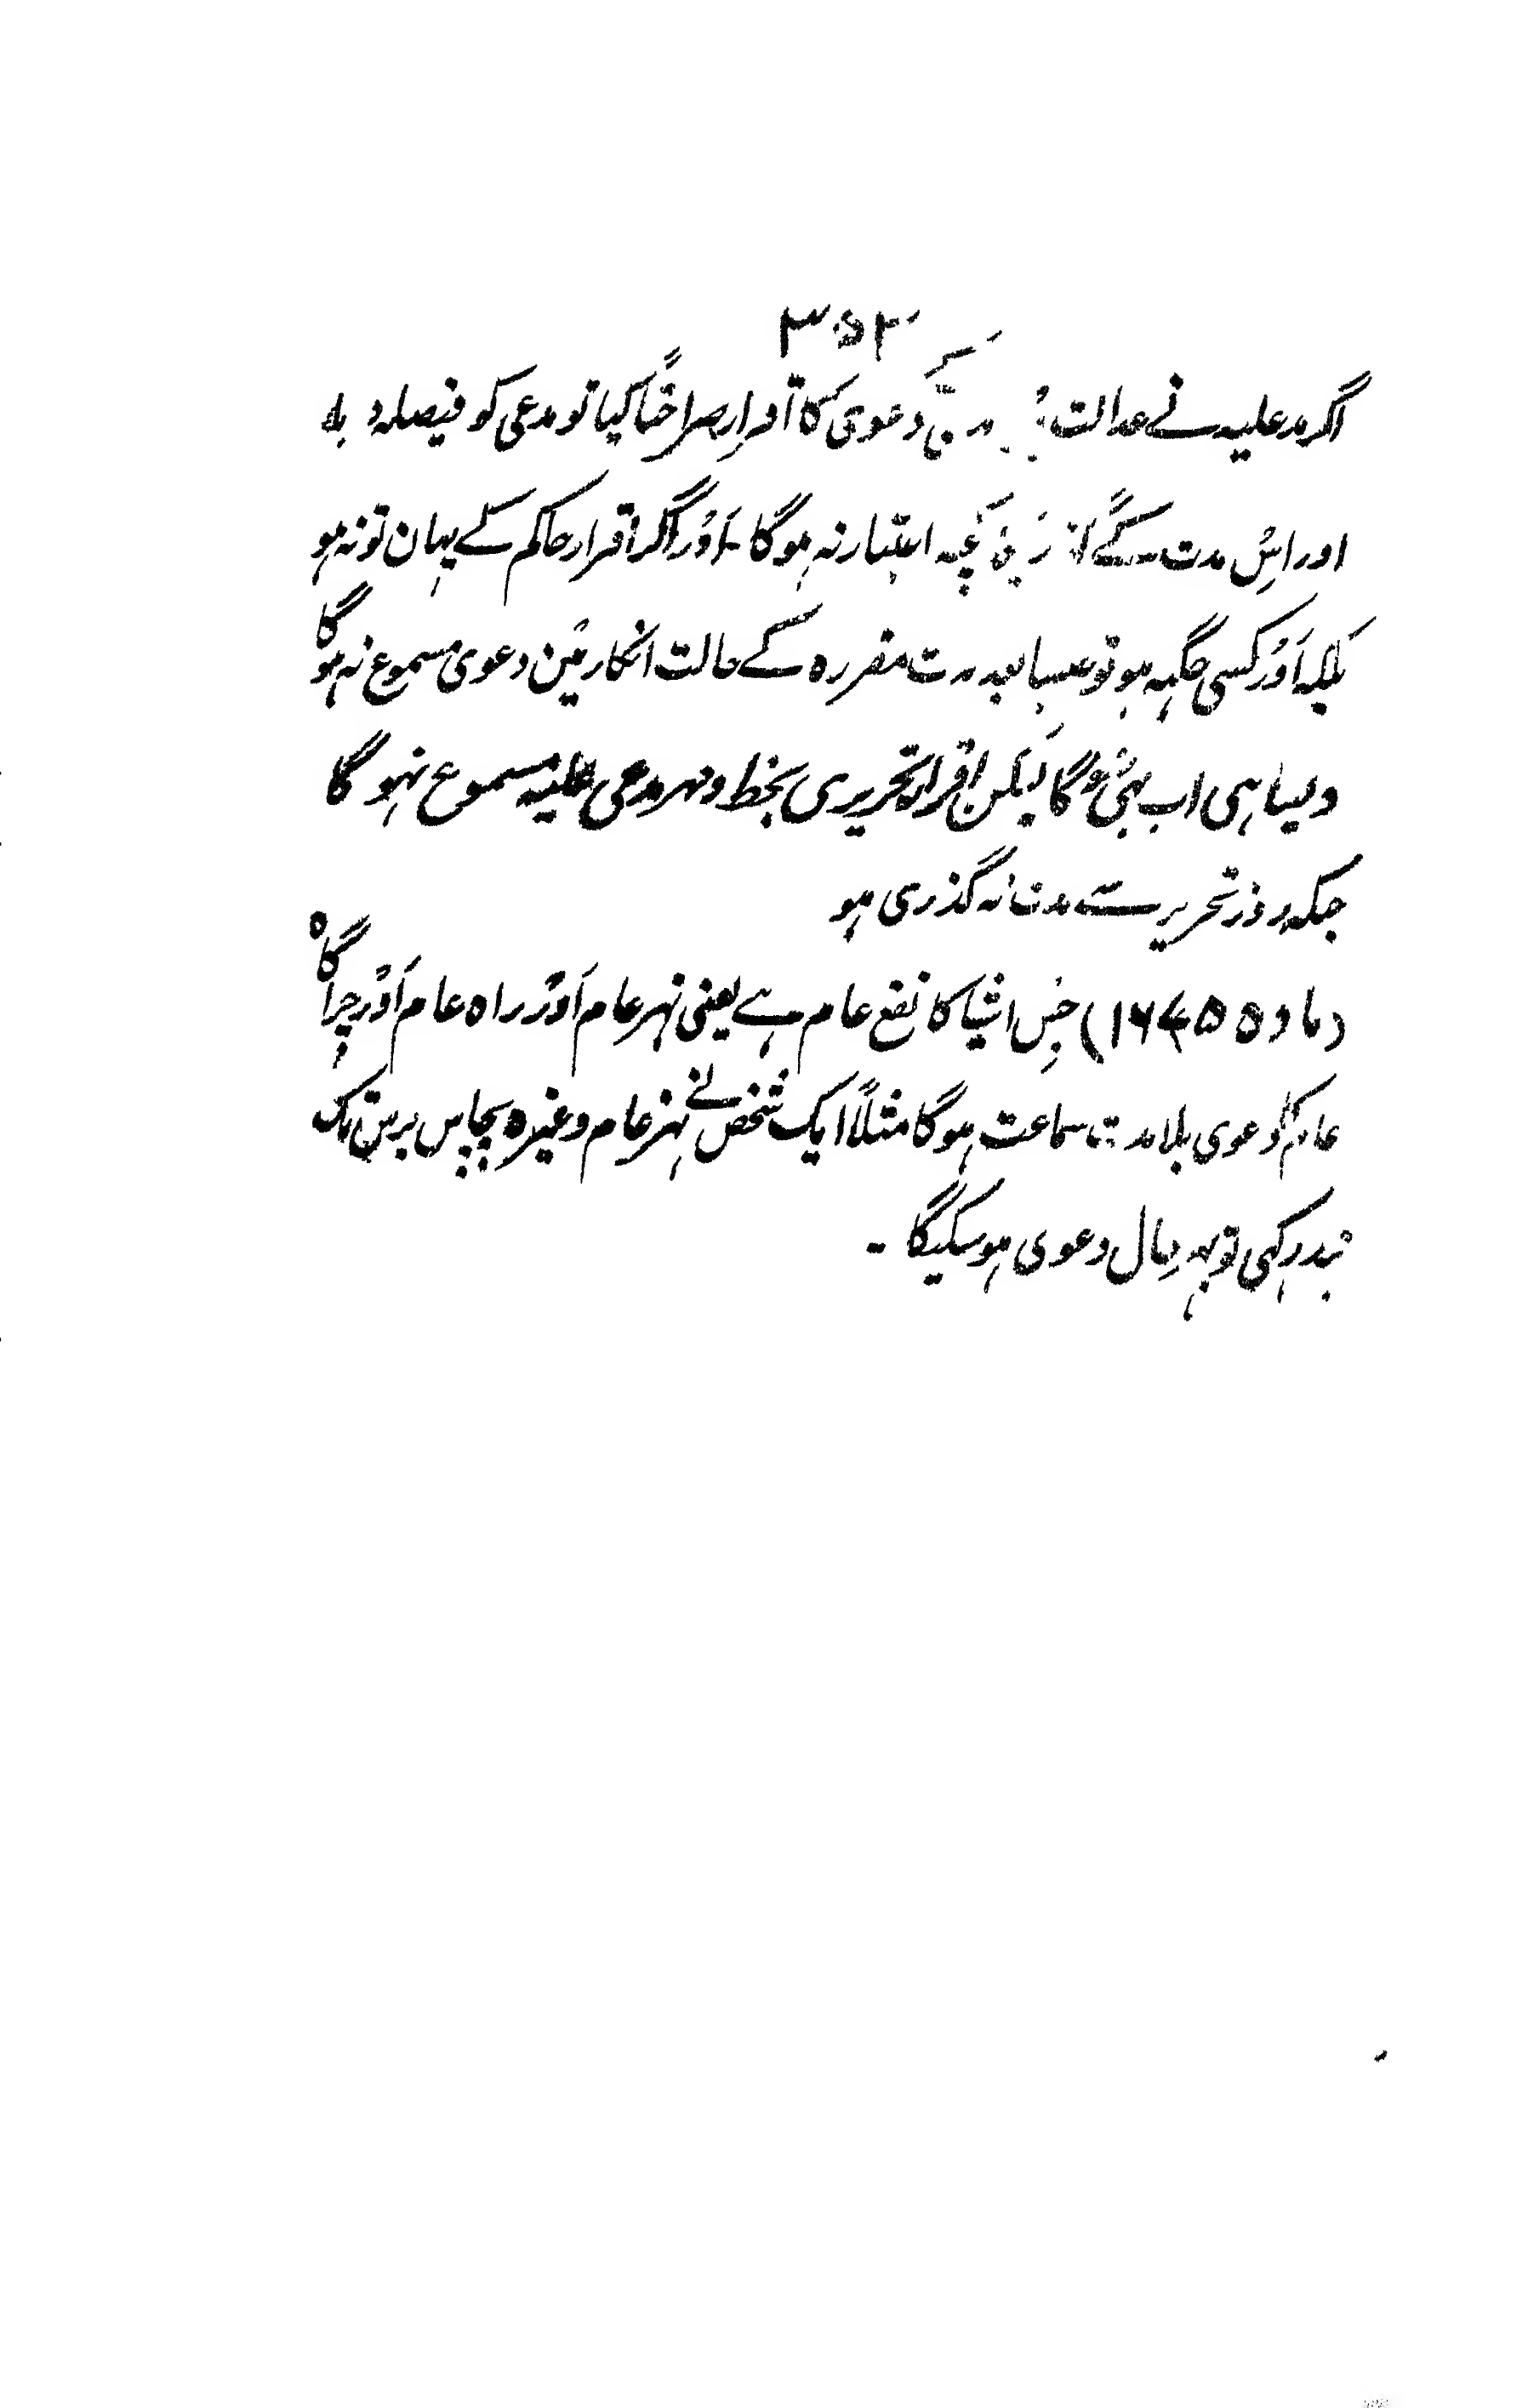 ۳۵۲
اگر مدعلیہ نے عدالت دعوی کا اقرار صراحتًا کیا تو مدعی کو فیصلہ
اور اسِ مدت کے کچہ اعتبار نہ ہوگا ۔ اَوْر اگر اقرار حاکم کے یہان تو نہ ہو
بلکہ اَوْر کسی جگہہ ہو تو بعد مدت مقررہ کے حالت انکار میْن دعوی مسموع نہ ہوگا
ویسا ہی اب بہی ہوگا لیکن اقرار تحریری بخط و مہر مدعی علیہ مسموع نہوگا
جبکہ روز تحریر سے مدت نہ گذری ہو
(مادہ ۱۶۷۵) جنِ اشیا کا نفع عام ہے یعنی نہر عام اَوْر راہ عام اَوْر چراگاہ
عام کا دعوی بلا مدت سماعت ہوگا مثلاً ایک شخص نے نہر عام وغیرہ پچاس برس تک
بند رکہی تو دعوی ہو سکیگا ۔